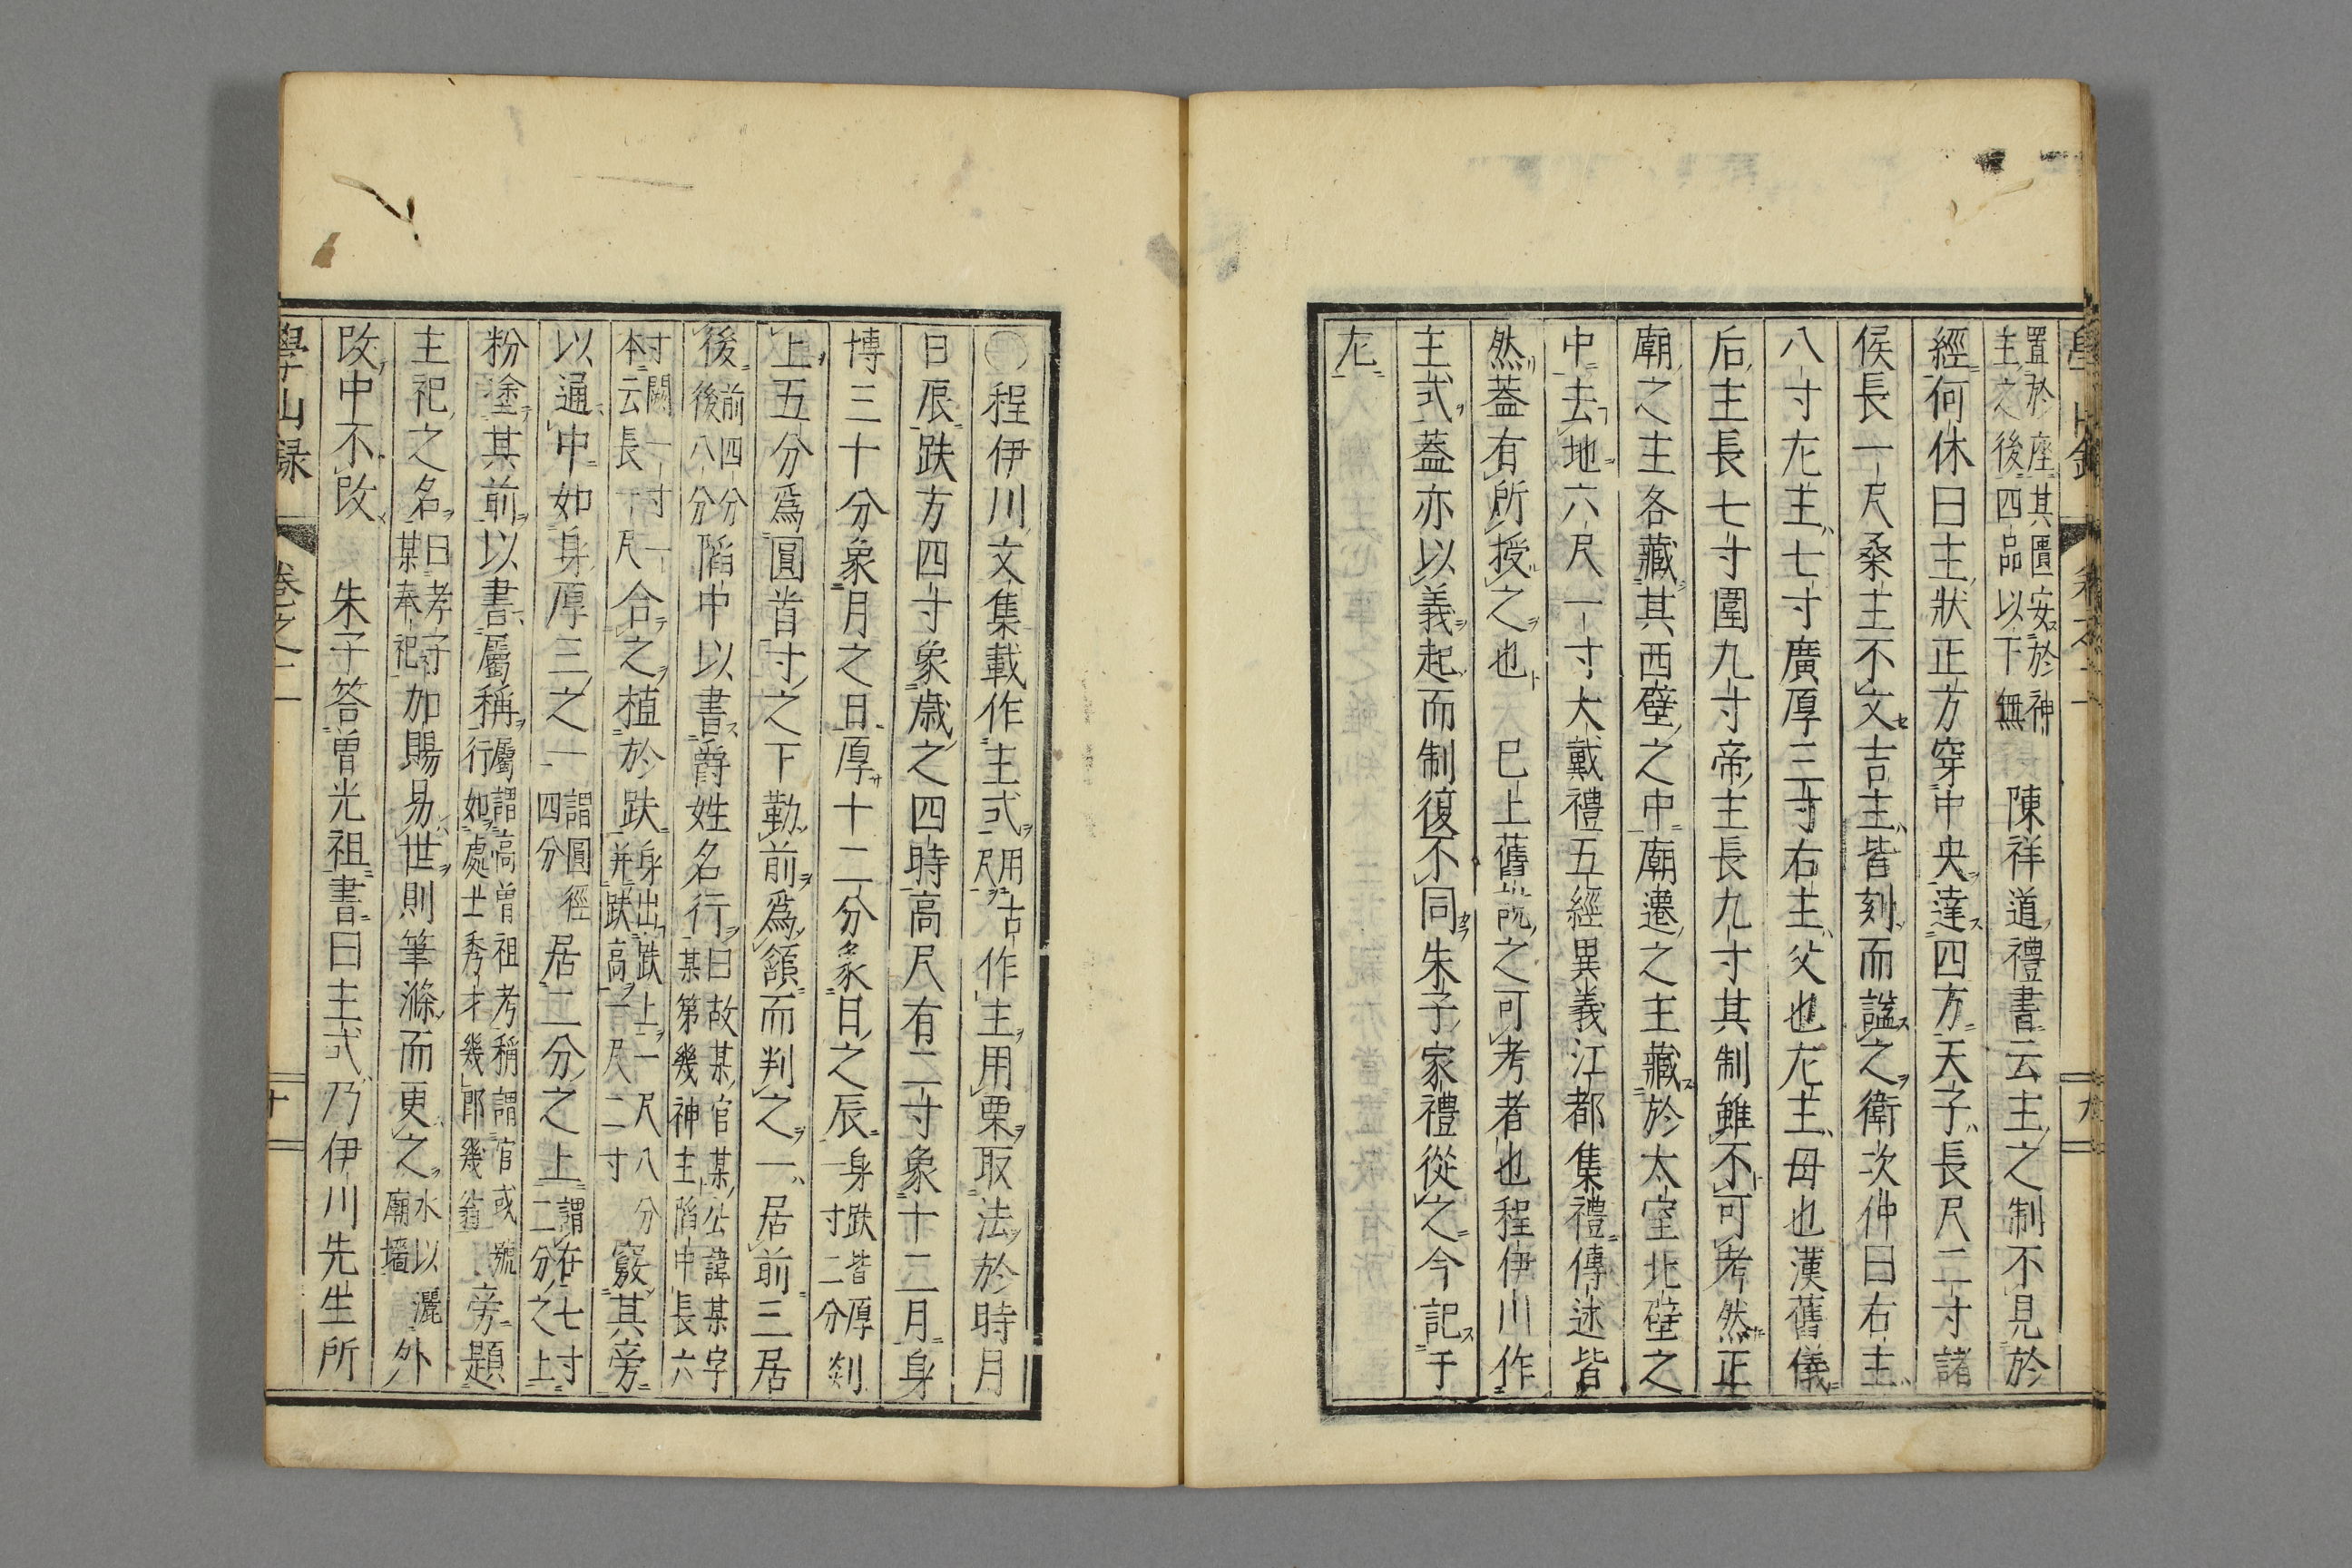 置於座其匱安於神
主之後四品以下無
陳祥道禮書云主之制不見於
經何休曰主狀正方穿中央達四方天子長尺二寸諸
侯長一尺桑主不文吉主皆刻而謚之衛次仲曰右主
八寸左主七寸廣厚三寸右主父也左主母也漢舊儀
后主長七寸圍九寸帝主長九寸其制雖不可考然正
廟之主各藏其西壁之中廟遷之主藏於太室北壁之
中去地六尺一寸大戴禮五經異義江都集禮傳述皆
然蓋有所授之也 已上舊說之可考者也程伊川作
主式蓋亦以義起而制復不同朱子家禮從之今記于
左
學山錄 卷之二 九
○程伊川文集載作主式
用古
尺
作主用栗取法於時月
日辰趺方四寸象歲之四時高尺有二寸象十二月身
博三十分象月之日厚十二分象日之辰
身趺皆厚
一寸二分
剡
上五分爲圓首寸之下勒前爲額而判之一居前二居
後
前四分
後八分
陷中以書爵姓名行
曰故某官某公諱某字
某第幾神主陷中長六
寸闊一寸一
本云長一尺
合之植於趺
身出趺上一尺八分
并趺高一尺二寸
竅其旁
以通中如身厚三之一
謂圓徑
四分
居二分之上
謂在七寸
二分之上
粉塗其前以書屬稱
屬謂高曾祖考稱謂官或號
行如處士秀才幾郎幾翁
旁題
主祀之名
曰孝子
某奉祀
加贈易世則筆滌而更之
水以灑
廟墻
外
改中不改 朱子答曾光祖書曰主式乃伊川先生所
學山錄 卷之二 十